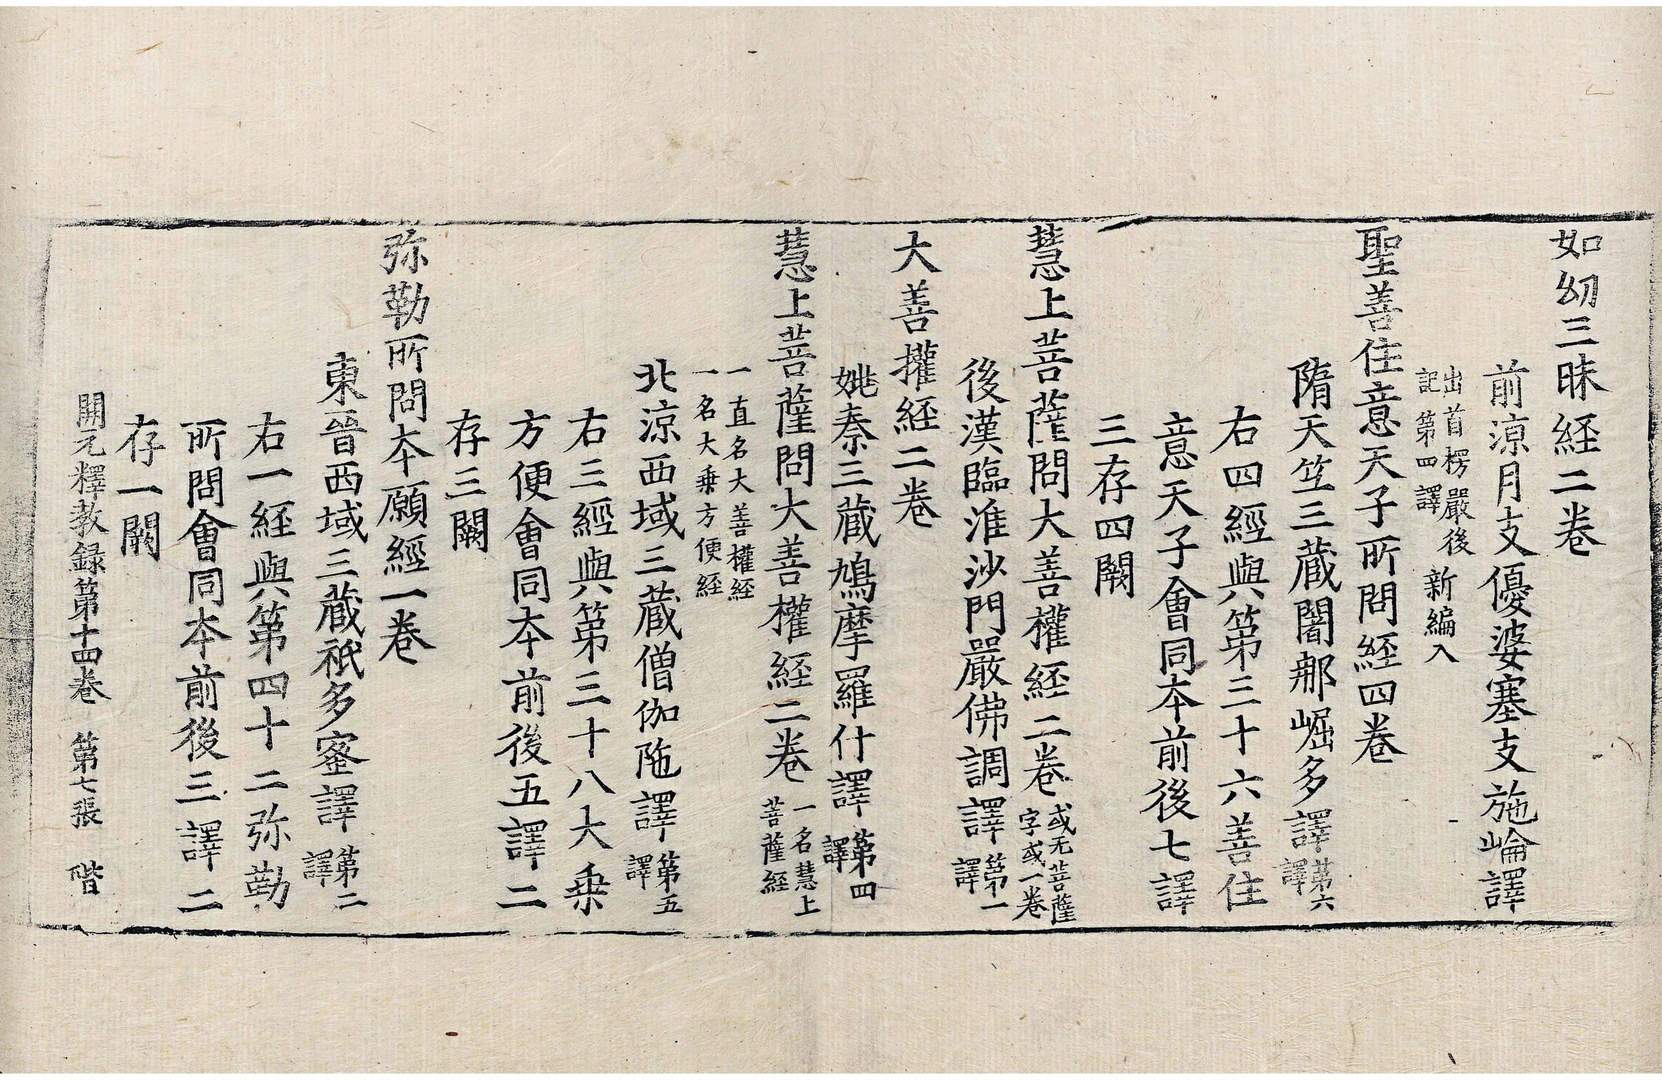 如幻三昧経二卷
前涼月支優婆塞支施崘譯
出首楞嚴後
記第四譯
新編入
聖善住意天子所問経四卷
隋天竺三藏闍那崛多譯第六譯
右四經與第三十六善住
意天子會同本前後七譯
三存四闕
慧上菩薩問大善權経二卷或无菩薩字或一卷
後漢臨淮沙門嚴佛調譯第一譯
大善擢経二卷
姚秦三藏鳩摩羅什譯第四譯
慧上菩薩問大善權経二卷一名慧上菩薩経
一直名大善權経
一名大乗方便経
北涼西域三藏僧伽陁譯第五譯
右三經與第三十八大乗
方便會同本前後五譯二
存三闕
弥勒所問本願經一卷
東晉西域三藏祇多蜜譯第二譯
右一経與第四十二弥勒
所問會同本前後三譯二
存一闕
開元釋教録第十四卷 第七張 階